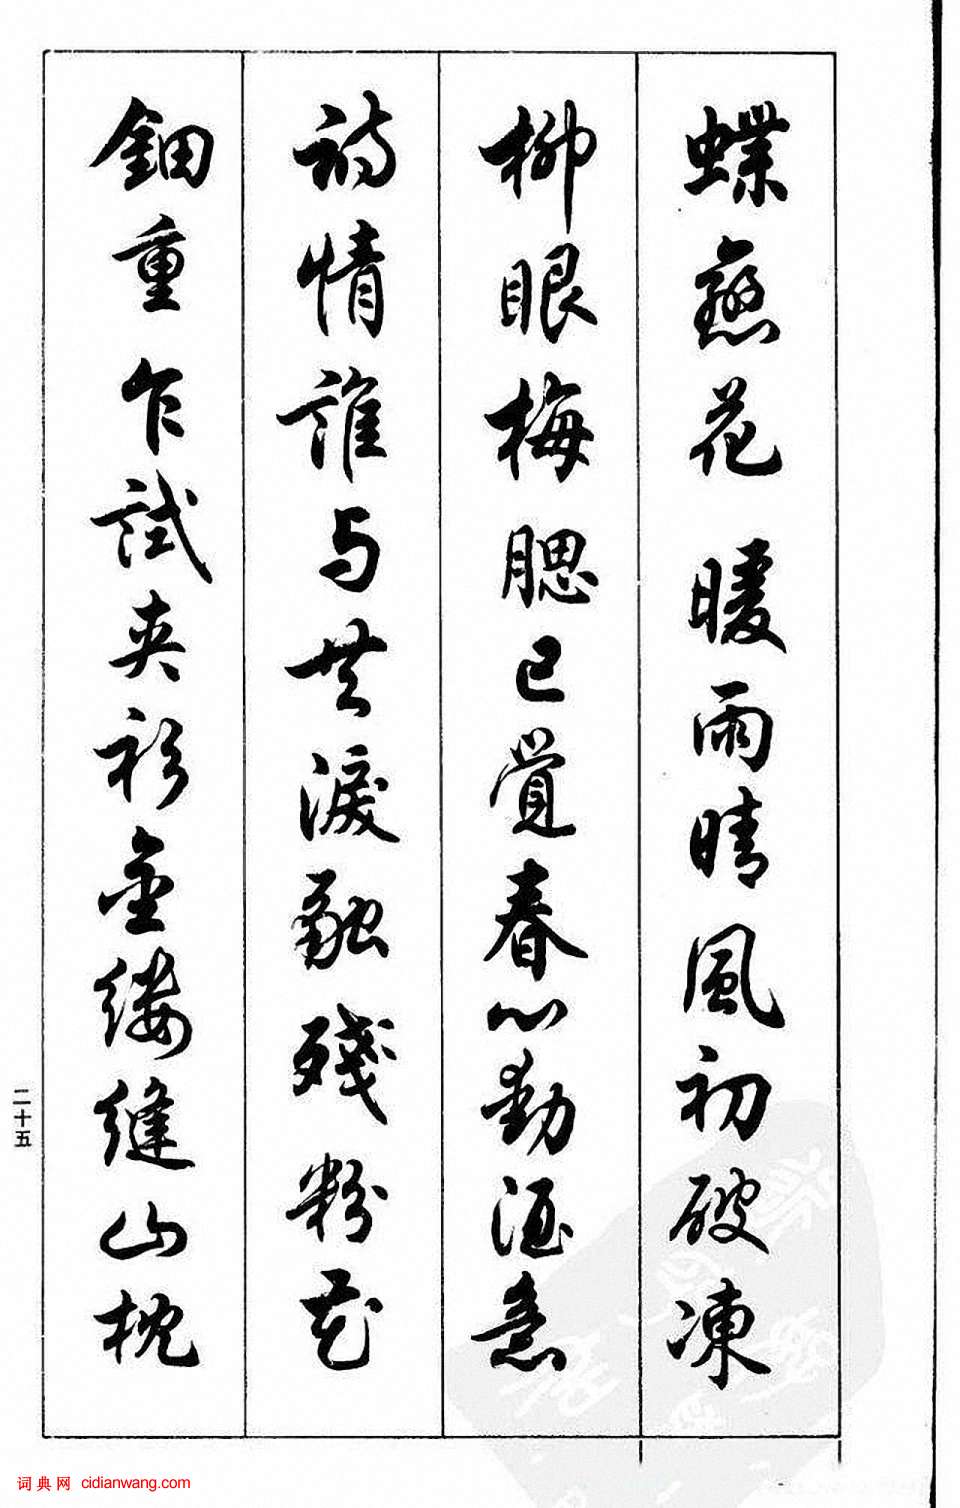 蝶戀花暖雨晴風初破凍
柳眼梅腮已覺春心動酒意
詩情誰与共淚融殘粉花
鈿重乍試夾衫金縷縫山枕
二十五
词典网 cidianwang.com